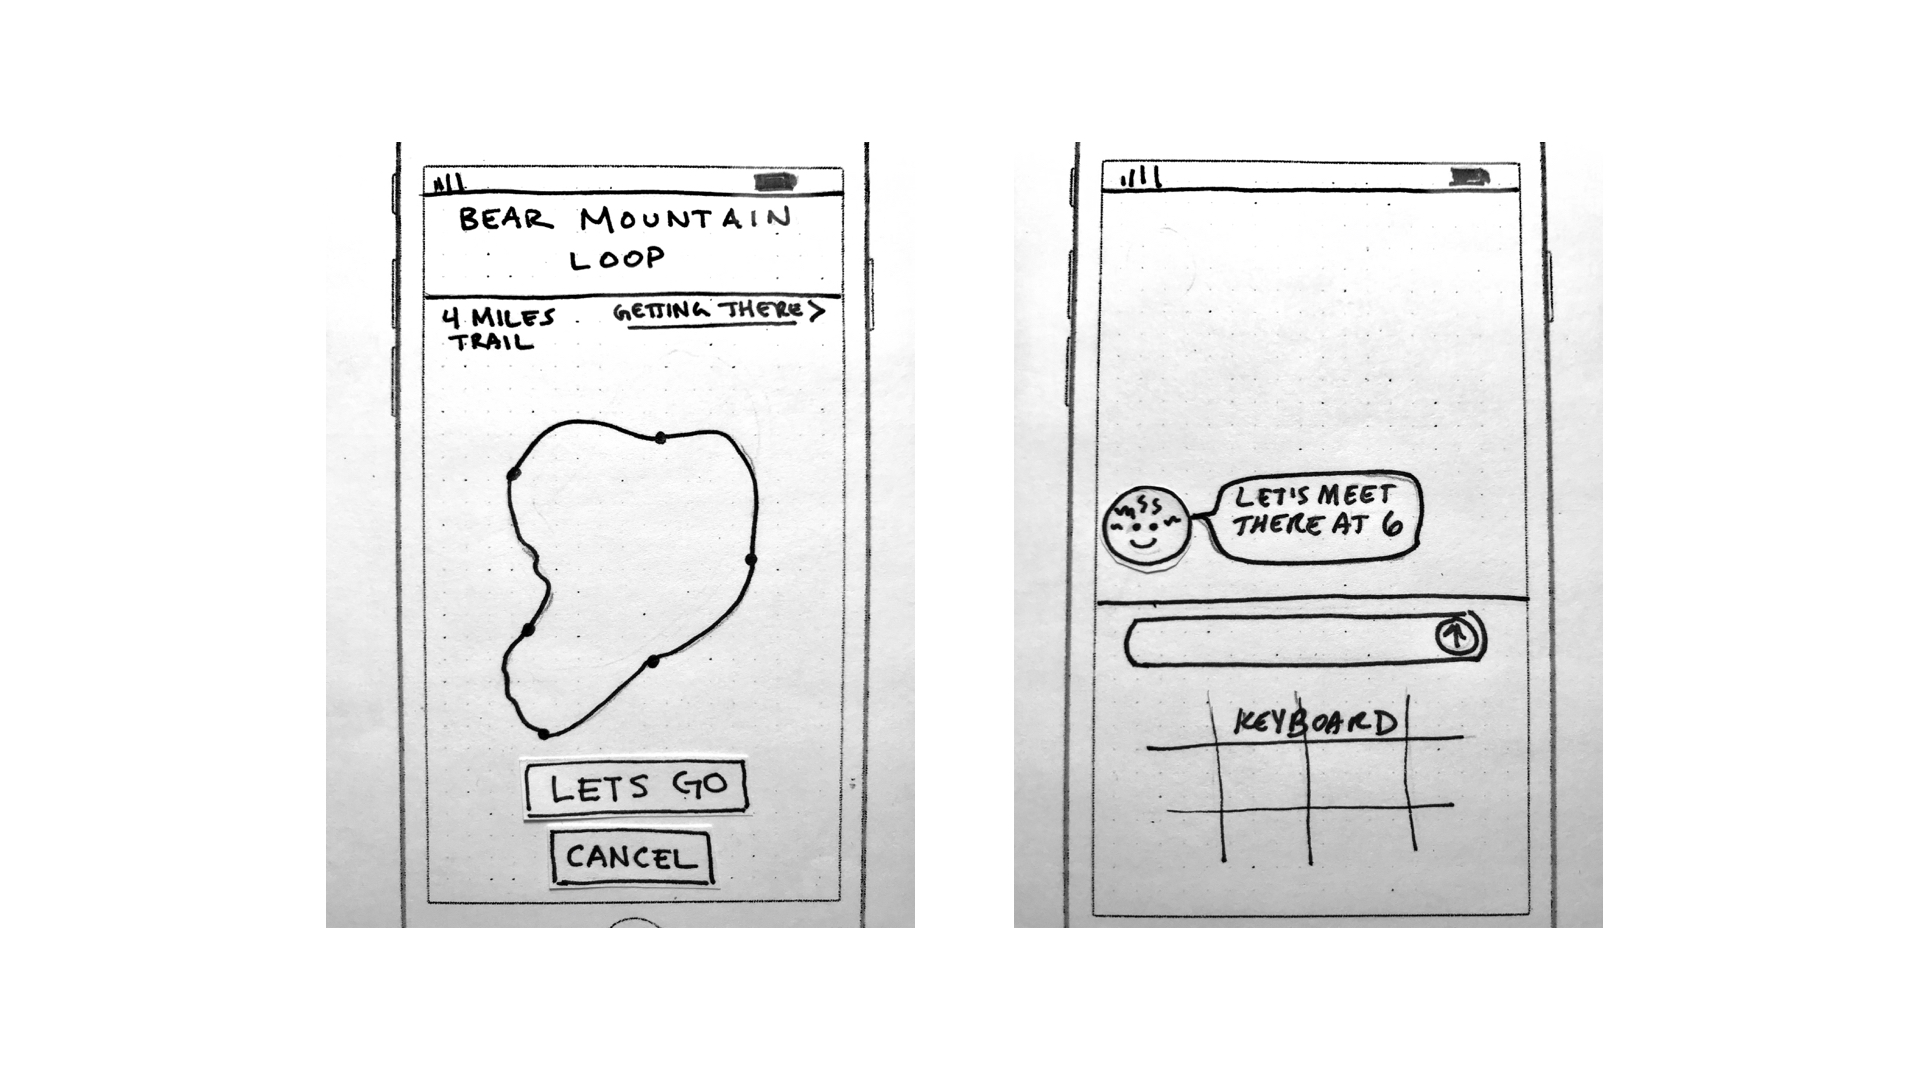 BEAR MOUNTAIN
LOOP
4 MILES
TRAIL
GETTING THERE >
LETS GO
CANCEL
LET'S MEET
THERE AT 6
KEYBOARD